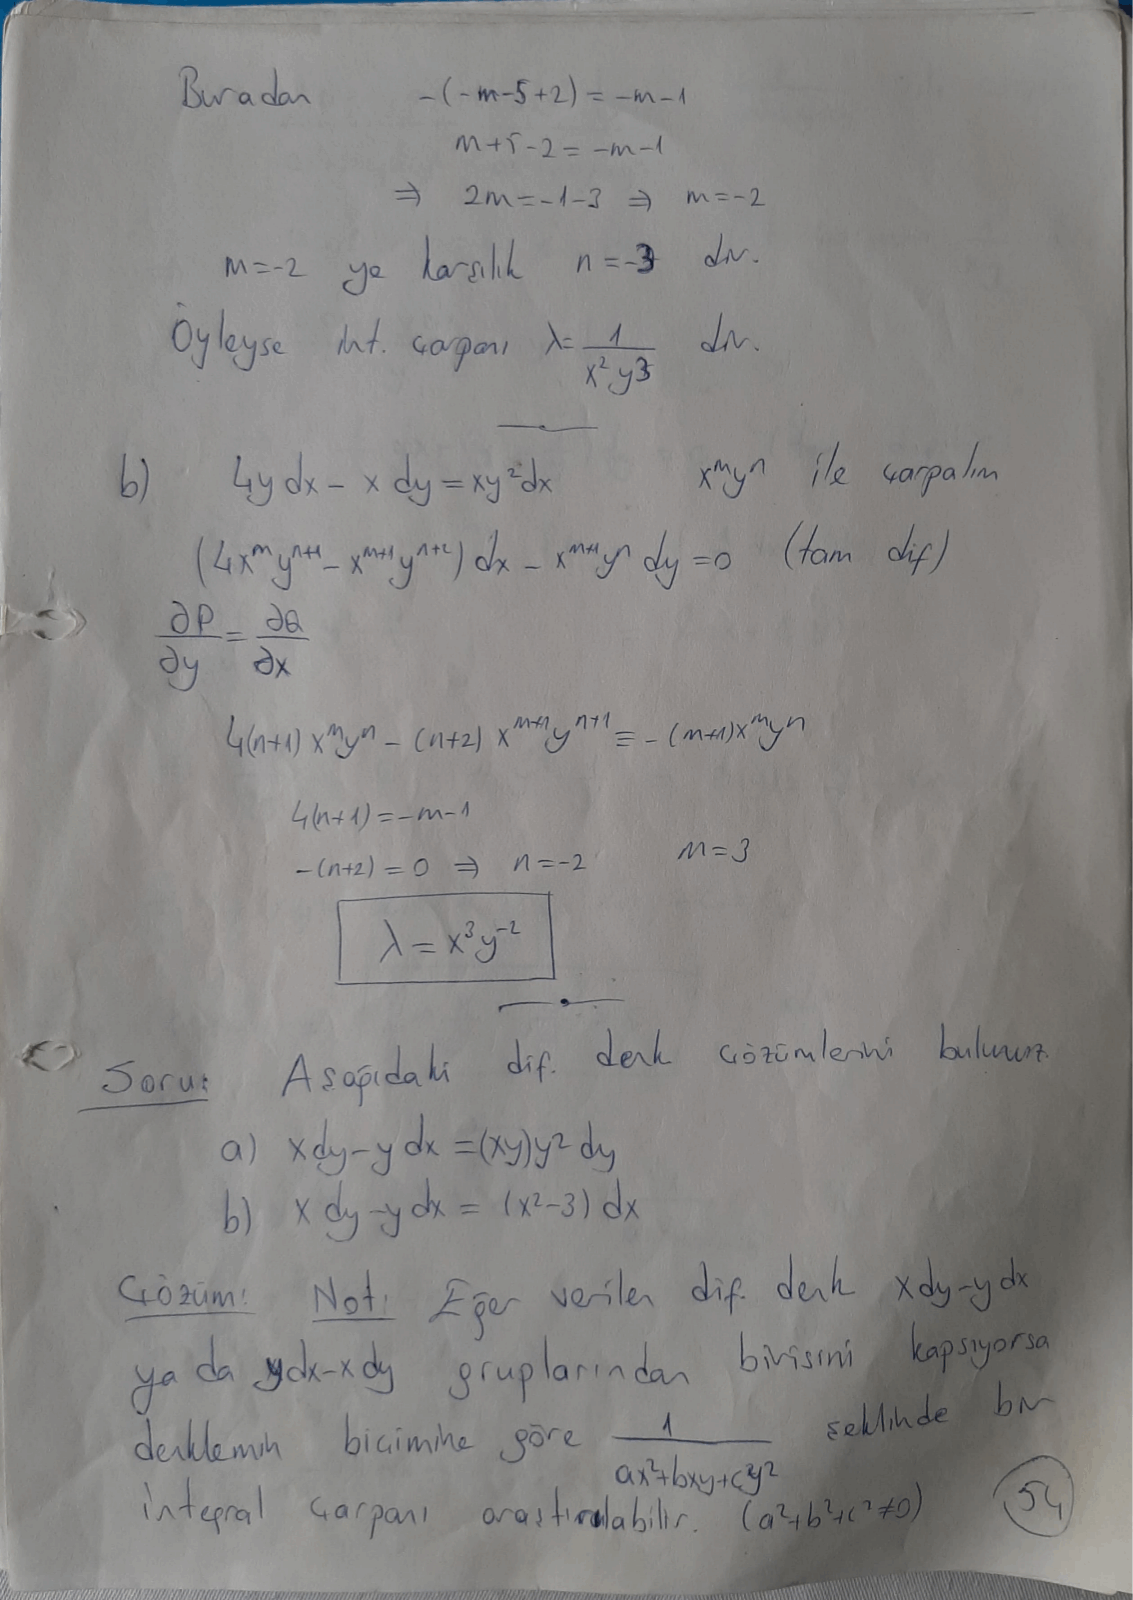 Buradan -(-m-5+2) = -m-1
m+5-2 = -m-1
⇒ 2m = -1-3 ⇒ m=-2
m=-2 ye karşılık n=-3 dir.
Öyleyse int. çarpanı λ= 1/(x²y³) dir.
b) 4y dx - x dy = xy²dx xᵐyⁿ ile çarpalım
(4xᵐyⁿ⁺¹ - xᵐ⁺¹yⁿ⁺²) dx - xᵐ⁺¹yⁿ dy = 0 (tam dif)
∂P/∂y = ∂Q/∂x
4(n+1) xᵐyⁿ - (n+2) xᵐ⁺¹yⁿ⁺¹ ≡ - (m+1)xᵐyⁿ
4(n+1) = -m-1
-(n+2) = 0 ⇒ n=-2 m=3
λ = x³y⁻²
Soru: Aşağıdaki dif. denk çözümlerini bulunuz.
a) x dy - y dx = (xy)y² dy
b) x dy - y dx = (x²-3) dx
Çözüm: Not: Eğer verilen dif. denk x dy - y dx
ya da ydx - x dy gruplarından birisini kapsıyorsa
denklemin biçimine göre 1/(ax²+bxy+cy²) şeklinde bir
integral çarpanı araştırılabilir. (a²+b²+c²≠0)
54